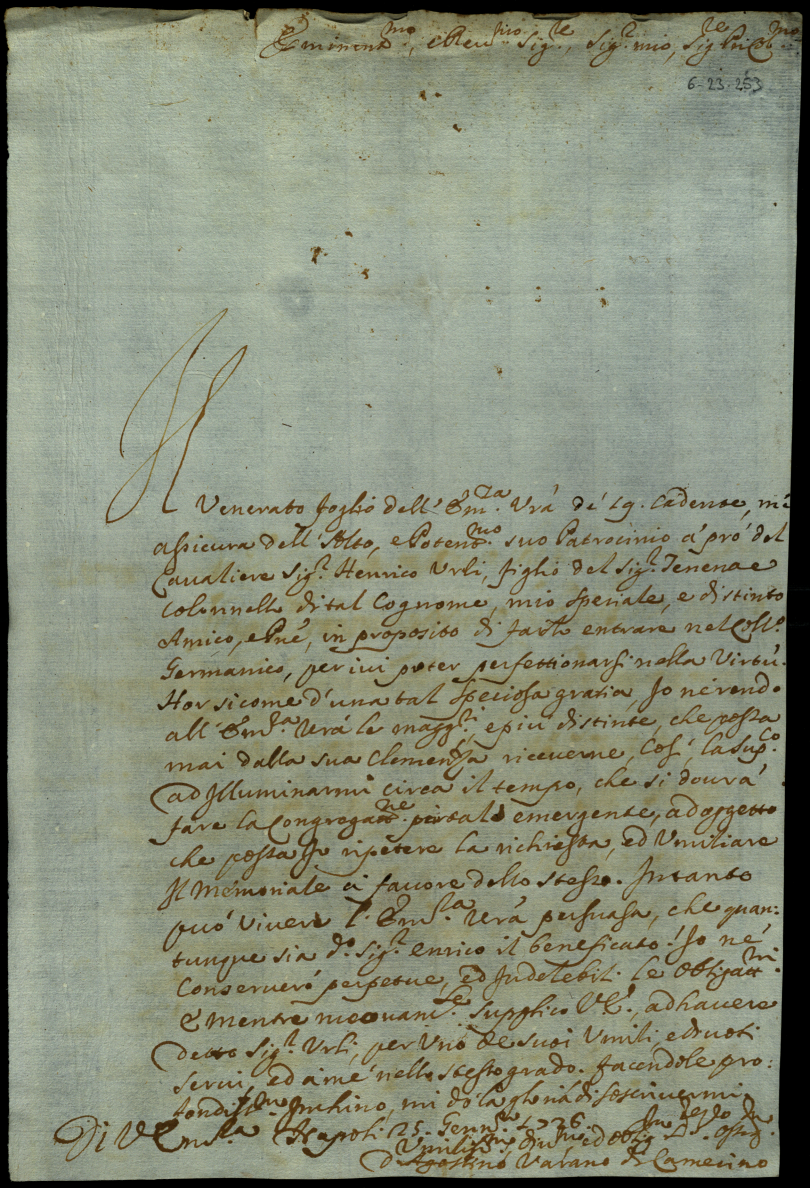 Eminentmo, e Reumo Sigre, Sigr mio, Sigre Pñe Colmo
6-23-253
Il Venerato foglio dell' Em.za Vrã dé 19. Cadente, mi
assicura dell' Alto, e Potentmo suo Patrocinio á pró del
Cavaliere Sigr Henrico Urli, figlio del Sigr Tenente
Colonnello di tal Cognome, mio speciale, e distinto
Amico, e Pñe, in proposito di farlo entrare nel Collo
Germanico, per ivi poter perfettionarsi nella Virtù.
Hor sicome d'una tal speciosa gratia, Io né rendo
all' Em.za Vrã le maggri, e più distinte, che possa
mai dalla sua Clemenza riceverne, Così, la Supco
ad Illuminarmi circa il tempo, che si dovrá
fare la Congregatne per tale emergente, ad oggetto
che possa Io ripetere la richiesta, ed Umiliare
Il Memoriale á favore dello stesso. Intanto
può vivere l' Em.za Vrã persuasa, che quan:
tunque sia do Sigr Enrico il beneficato! Io né
Conserveró perpetue, ed Indelebili le Obligattni.
E mentre Supplico V.E., ad havere
detto Sigr Urli, per Uno de suoi Umili, e divoti
servi, ed à mé nello stesso grado. facendole pro:
fondissmo Inchino, mi dó la gloria di soscrivermi
Di V. Em.za Napoli 25. Gennro 1726
Umilissmo Divmo ed Obligmo
D. Agostino Varano di Camerino